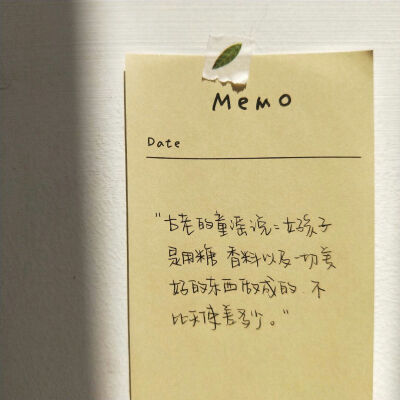 Memo
Date
"古老的童谣说：好孩子
是用糖 香料以及一切美
好的东西做成的.不
比天使差多少。"